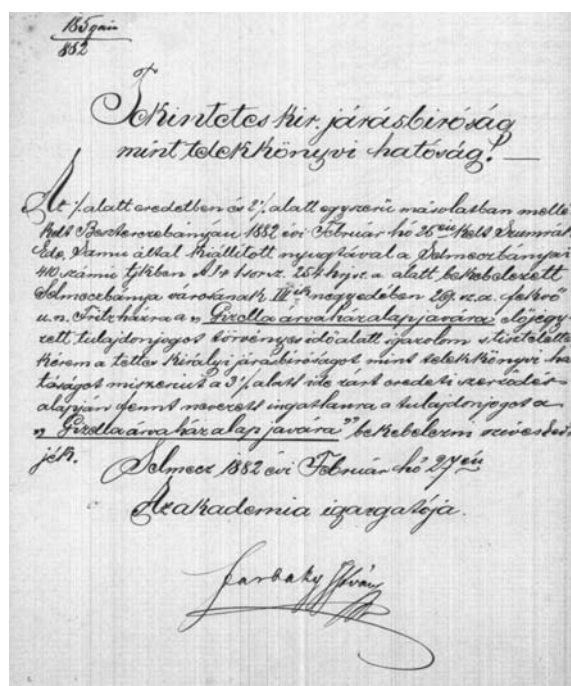 852
Tekintetes kir. járásbiróság
mint telekkönyvi hatóság!
Az 1/. alatt eredetben és 2/. alatt egyszerü másolatban mellé
kelt Beszterczebányán 1882 évi Február hó 25 én kelt Szumrák
Ede, Samu által kiállitott nyugtával a Selmeczbányai
410 számú tjkben A I + 1 sorsz. 254 hrjsz. a. alatt bekebelezett
Selmeczbánya városának III ik negyedében 269. sz. a. fekvő
u. n. Fritz házra a „Gizella árva ház alap javára” előjegy-
zett tulajdonjogot törvényes idő alatt igazolom s tisztelettel
kérem a tettes királyi járásbiróságot mint telekkönyvi ha-
tóságot miszerint a 3/. alatt ide zárt eredeti szerződés
alapján fennt nevezett ingatlanra a tulajdonjogot a
„Gizella árva ház alap javára” bekebelezni szivesked-
jék.
Selmecz 1882 évi Február hó 27 én
Az akademia igazgatója.
Farbaky István